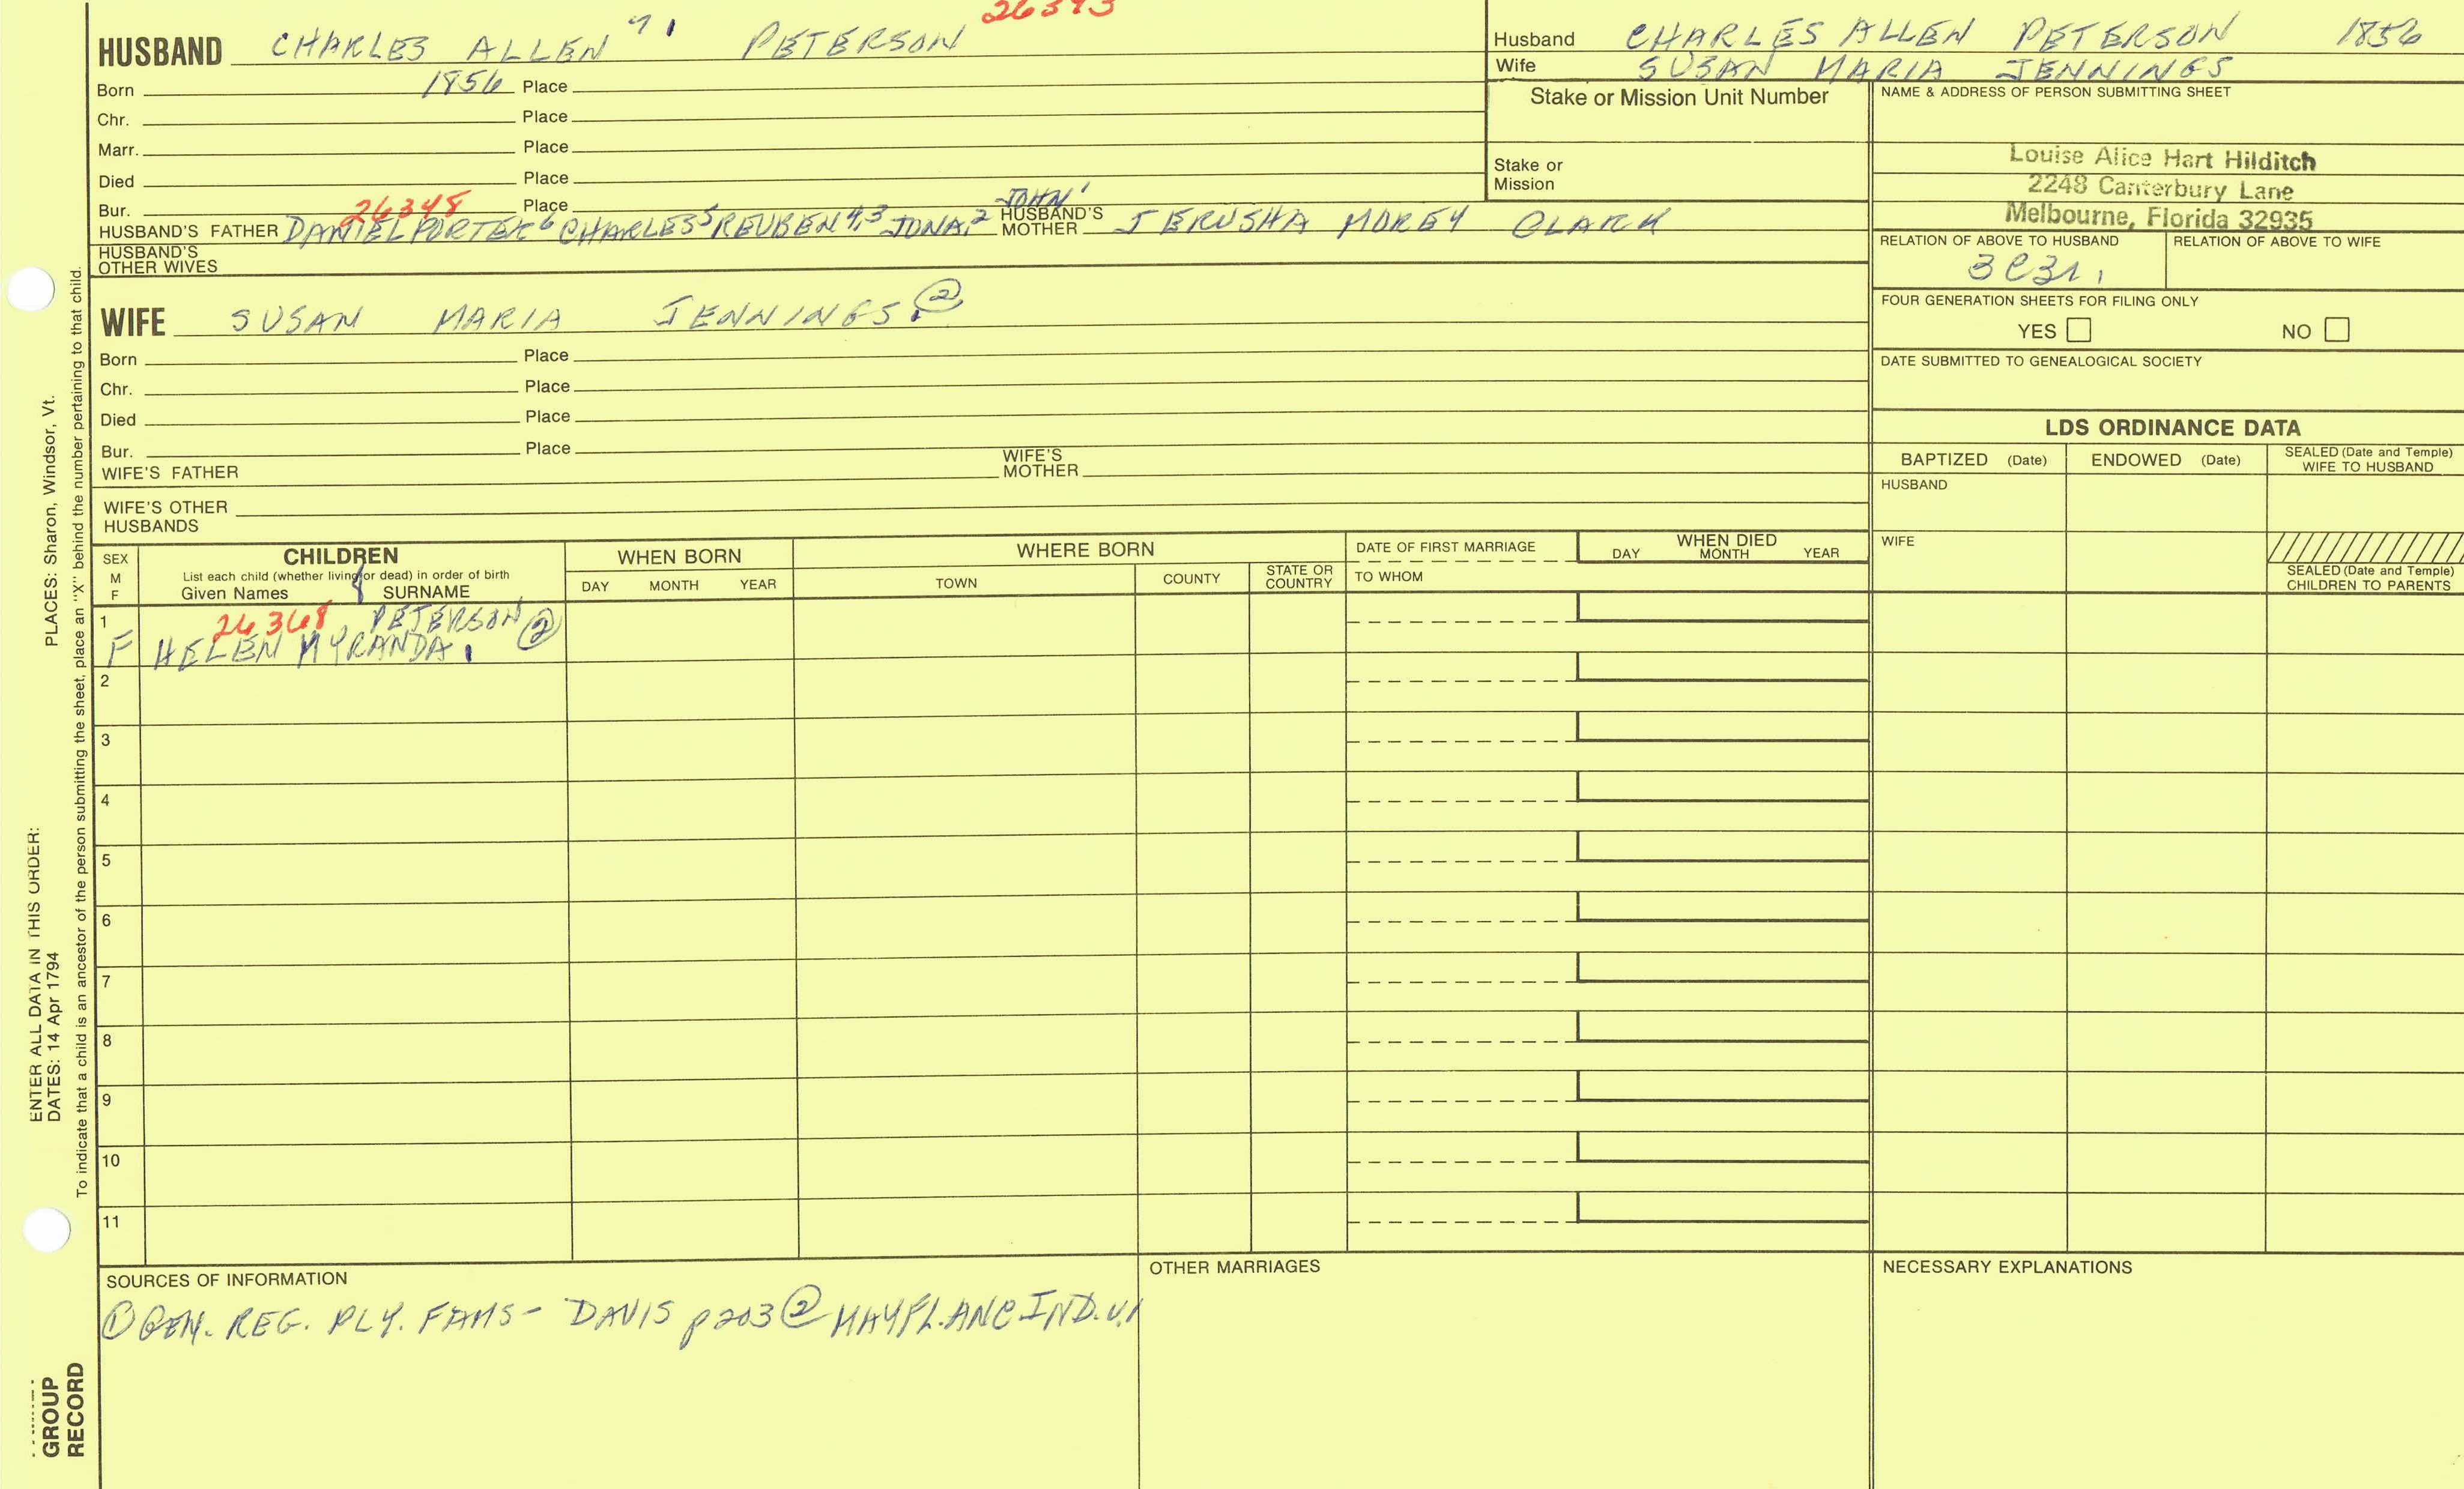 HUSBAND CHARLES ALLEN 7 1 PETERSON 26393
Born 1856 Place
Chr. Place
Marr. Place
Died Place
Bur. 26348 Place
HUSBAND'S FATHER DANIEL PORTER6 CHARLES5 REUBEN4,3 JONA.2 JOHN1 HUSBAND'S MOTHER JERUSHA MOREY CLARK
HUSBAND'S OTHER WIVES
WIFE SUSAN MARIA JENNINGS. ②
Born Place
Chr. Place
Died Place
Bur. Place
WIFE'S FATHER WIFE'S MOTHER
WIFE'S OTHER HUSBANDS
Husband CHARLES ALLEN PETERSON 1856
Wife SUSAN MARIA JENNINGS
Stake or Mission Unit Number
Stake or Mission
NAME & ADDRESS OF PERSON SUBMITTING SHEET
Louise Alice Hart Hilditch
2248 Canterbury Lane
Melbourne, Florida 32935
RELATION OF ABOVE TO HUSBAND RELATION OF ABOVE TO WIFE
FOUR GENERATION SHEETS FOR FILING ONLY
YES NO
DATE SUBMITTED TO GENEALOGICAL SOCIETY
LDS ORDINANCE DATA
BAPTIZED (Date) ENDOWED (Date) SEALED (Date and Temple) WIFE TO HUSBAND
HUSBAND
WIFE
SEALED (Date and Temple) CHILDREN TO PARENTS
SEX M F
CHILDREN
List each child (whether living or dead) in order of birth
Given Names SURNAME
WHEN BORN
DAY MONTH YEAR
WHERE BORN
TOWN COUNTY STATE OR COUNTRY
DATE OF FIRST MARRIAGE
TO WHOM
WHEN DIED
DAY MONTH YEAR
1 26368 PETERSON ②
F HELEN MYRANDA.
2
3
4
5
6
7
8
9
10
11
SOURCES OF INFORMATION
① GEN. REG. PLY. FAMS - DAVIS p203 ② MAYFL. ANC IND. V.1
OTHER MARRIAGES
NECESSARY EXPLANATIONS
ENTER ALL DATA IN THIS ORDER:
DATES: 14 Apr 1794 PLACES: Sharon, Windsor, Vt.
To indicate that a child is an ancestor of the person submitting the sheet, place an "X" behind the number pertaining to that child.
GROUP
RECORD